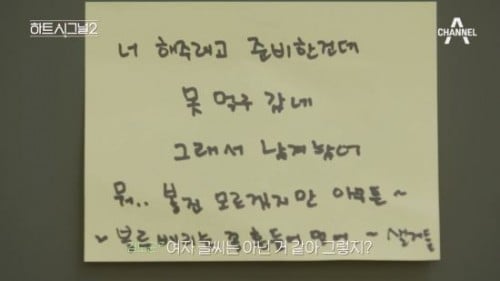 하트시그널2
CHANNEL A
너 해주려고 준비한건데
못 먹구 갔네
그래서 남겨놨어
뭐.. 볼진 모르겠지만 아무튼 ~
먹어 ~
여자 글씨는 아닌 거 같아 그렇지?